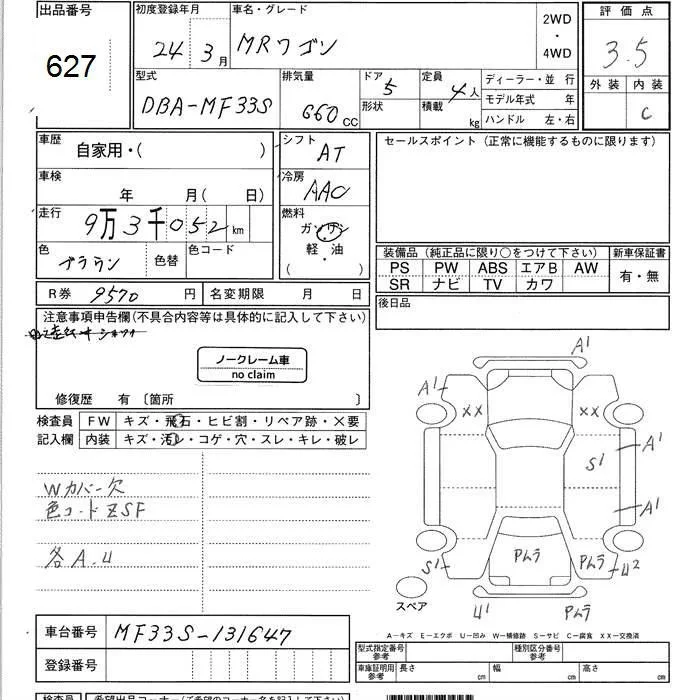 出品番号
627
初度登録年月
24 3月
車名・グレード
MRワゴン
2WD
・
4WD
評価点
3.5
外装 内装
C
型式
DBA-MF33S
排気量
660 CC
ドア 5
形状
定員 4人
積載 kg
ディーラー・並 行
モデル年式 年
ハンドル 左・右
車歴
自家用・( )
車検
年 月( 日)
走行
9万3千052 km
色
ブラウン
色替
色コード
シフト
AT
冷房
AAC
燃料
ガソリン
軽・油
( )
セールスポイント(正常に機能するものに限ります)
装備品(純正品に限り○をつけて下さい)
PS PW ABS エアB AW
SR ナビ TV カワ
新車保証書
有・無
後日品
R券 9570 円
名変期限 月 日
注意事項申告欄(不具合内容等は具体的に記入して下さい)
ノークレーム車
no claim
修復歴 有 〔箇所 〕
検査員
記入欄
FW キズ・飛石・ヒビ割・リペア跡・×要
内装 キズ・汚レ・コゲ・穴・スレ・キレ・破レ
Wカバー欠
色コードZSF
各A.U
A1
A1
XX XX
S1
A1
A1
Pムラ
Pムラ
S1
U2
U1
Pムラ
スペア
A―キズ E―エクボ U―凹み W―補修跡 S―サビ C―腐食 XX―交換済
車台番号
MF33S-131647
登録番号
型式指定番号
参考
種別区分番号
参考
車庫証明用
参考
長さ cm
幅 cm
高さ cm
検査員
希望出品コーナー(ご希望のコーナー名を記入下さい)